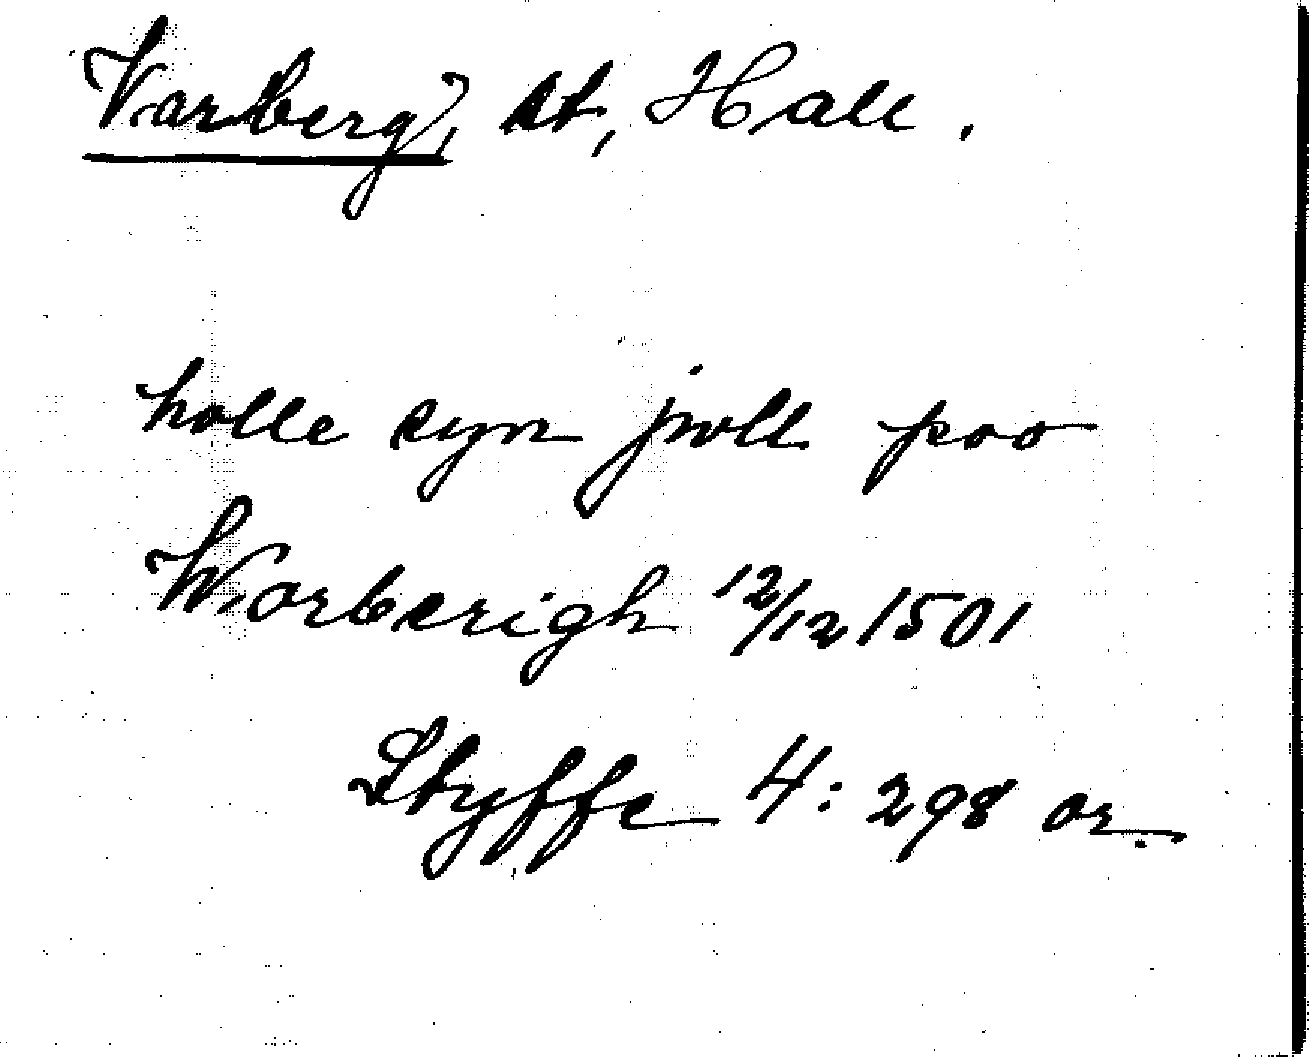 Varberg, st, Hall.
holle syn jwll poo
Worberigh 12/12 1501
Styffe 4: 298 or.